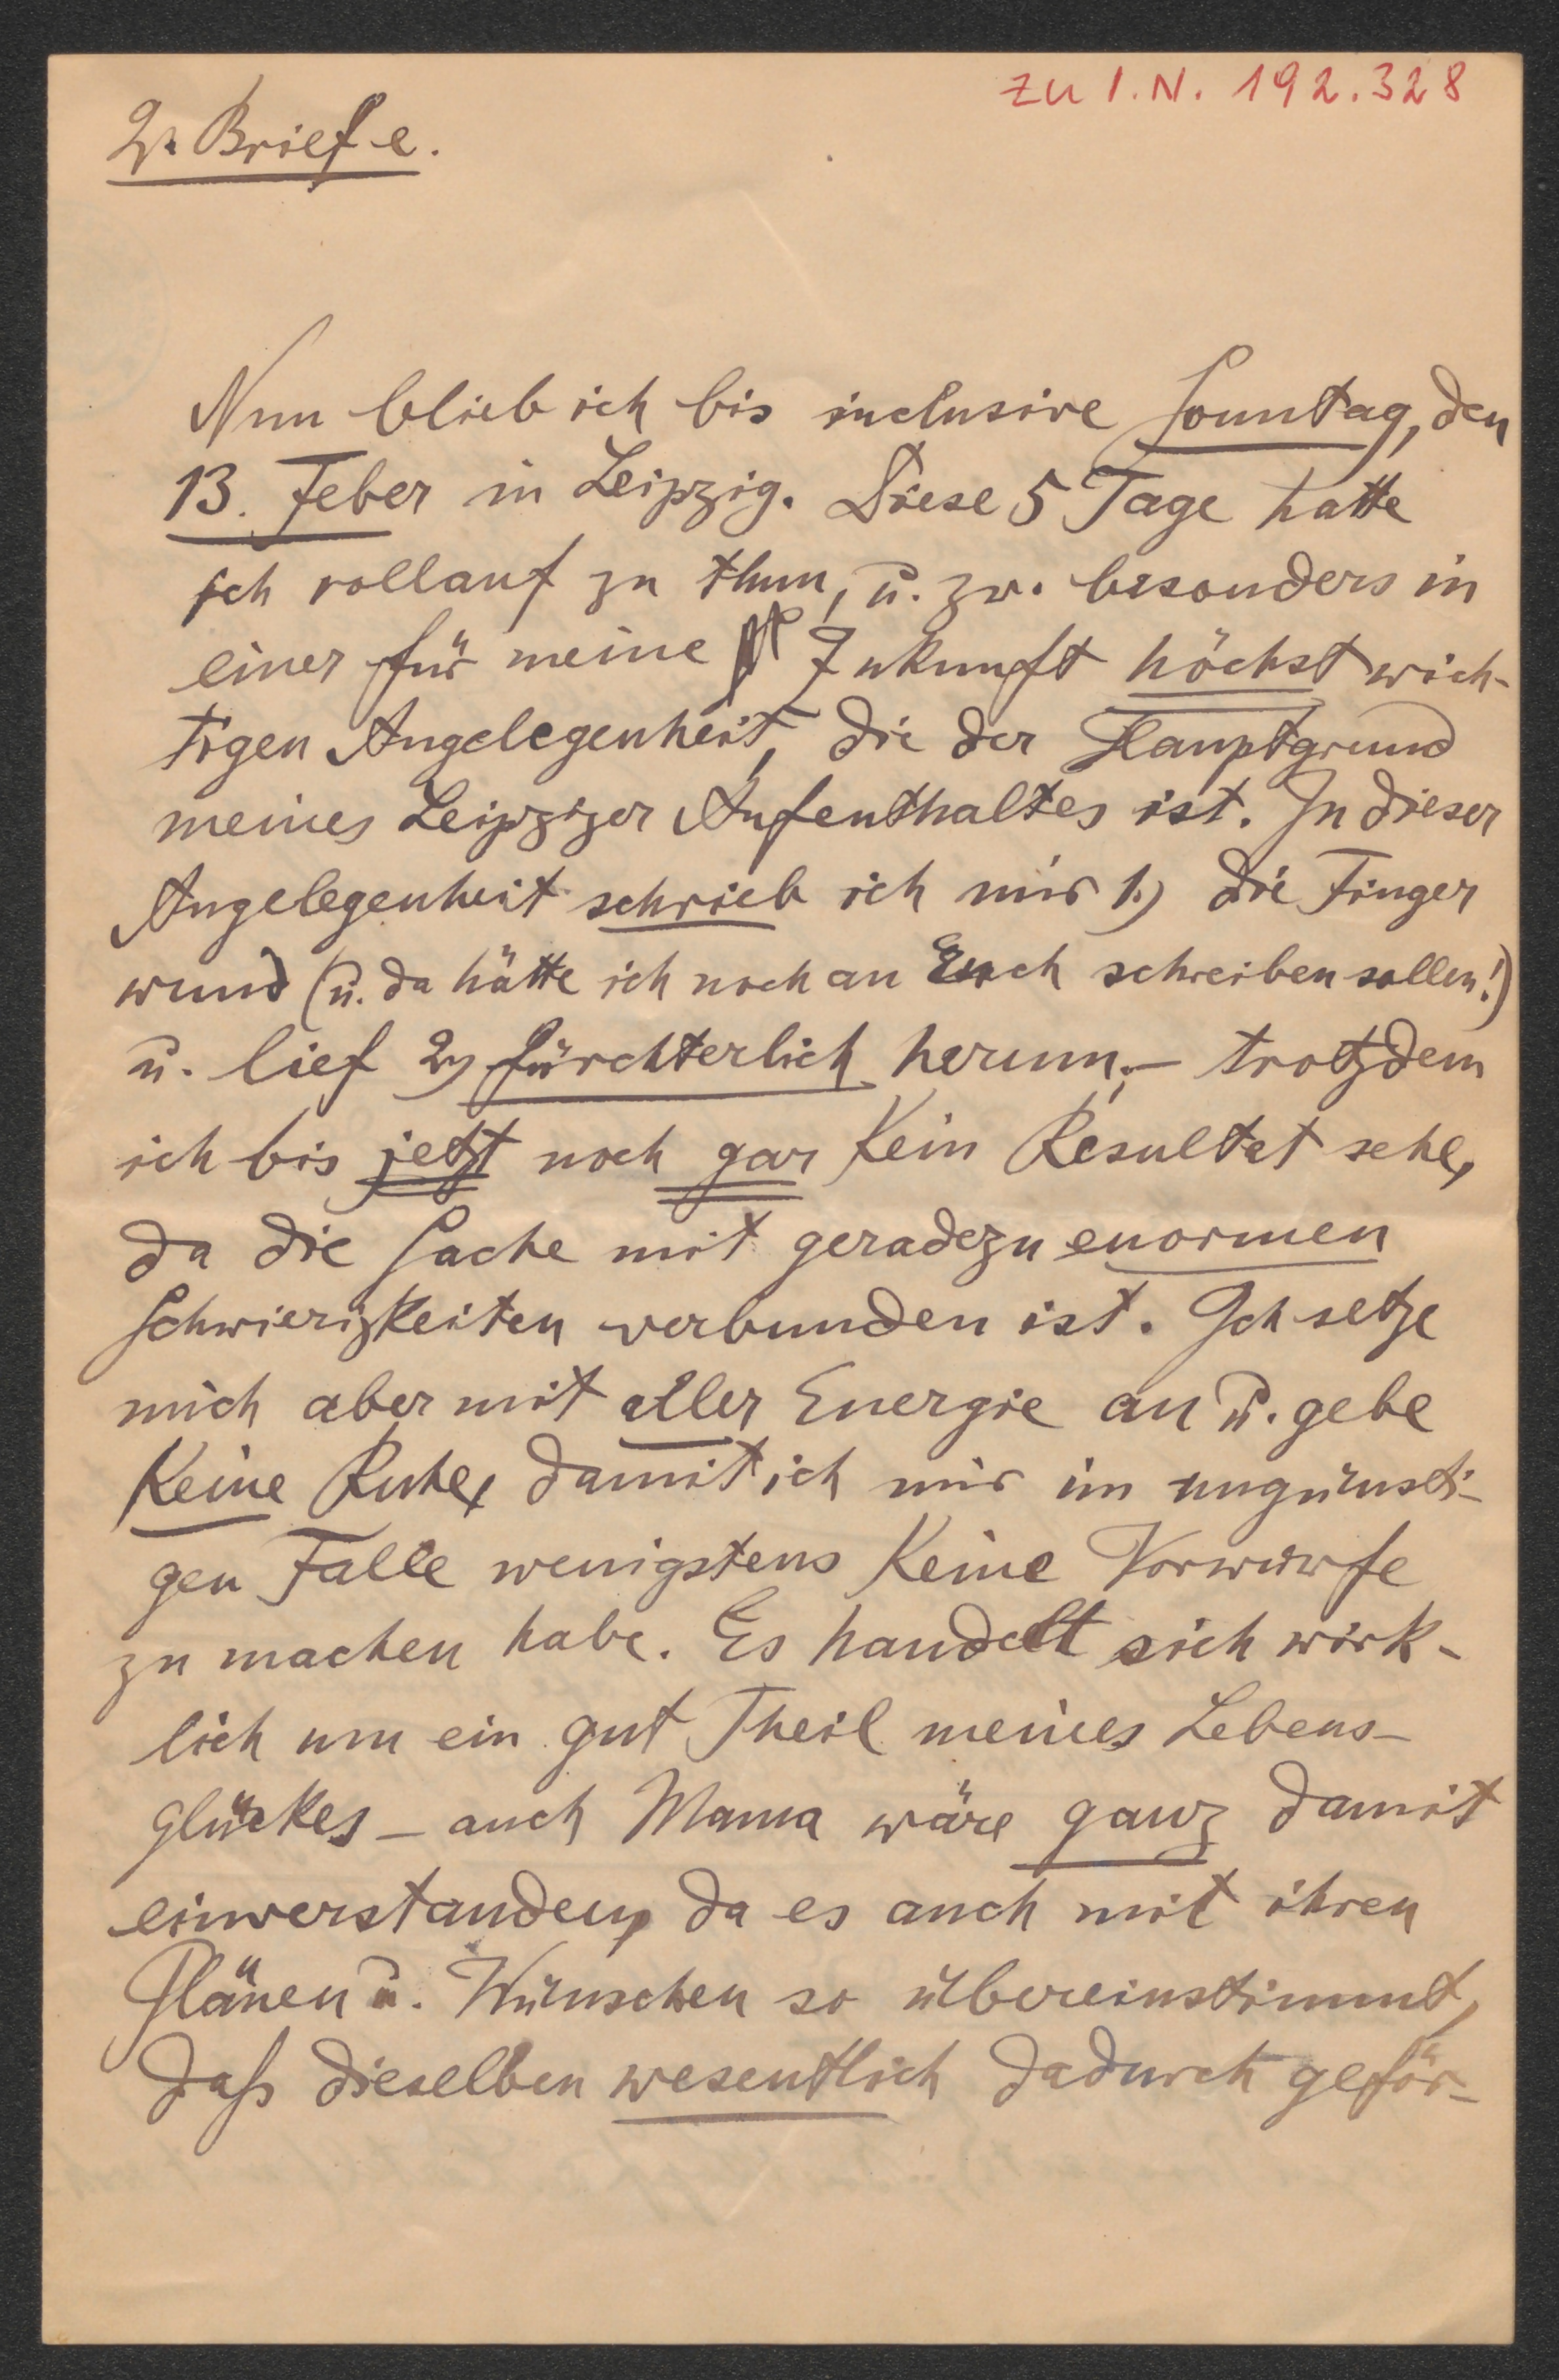 zu I.N. 192.328
2. Brief e.
Nun blieb ich bis inclusive Sonntag, den
13. Feber in Leipzig. Diese 5 Tage hatte
ich vollauf zu thun, u. zw. besonders in
einer für meine Zukunft höchst wich-
tigen Angelegenheit, die der Hauptgrund
meines Leipziger Aufenthaltes ist. In dieser
Angelegenheit schrieb ich mir 1.) die Finger
wund (u. da hätte ich noch an Euch schreiben sollen!)
u. lief 2) fürchterlich herum, – trotzdem
ich bis jetzt noch gar kein Resultat sehe,
da die Sache mit geradezu enormen
Schwierigkeiten verbunden ist. Ich setze
mich aber mit aller Energie an u. gebe
keine Ruhe, damit ich mir im ungünsti-
gen Falle wenigstens keine Vorwürfe
zu machen habe. Es handelt sich wirk-
lich um ein gut Theil meines Lebens-
glückes – auch Mama wäre ganz damit
einverstanden, da es auch mit ihren
Plänen u. Wünschen so übereinstimmt,
daß dieselben wesentlich dadurch geför-